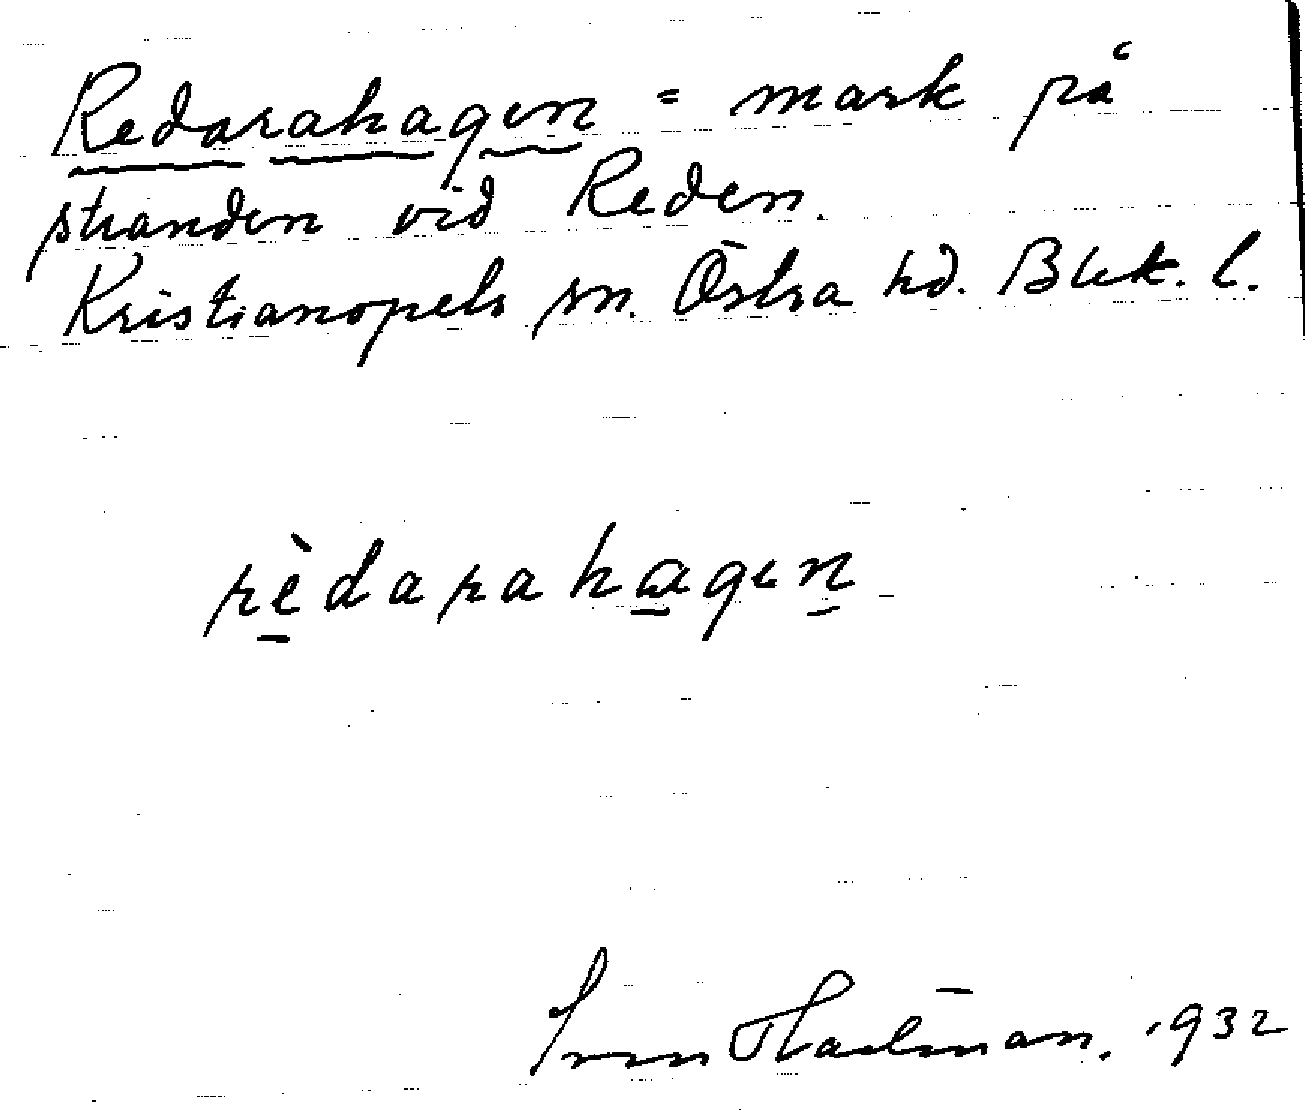 Redarahagen = mark på
stranden vid Reden.
Kristianopels sn. Östra hd. Blek. l.
rèdarahagen
Sven Hallman. 1932